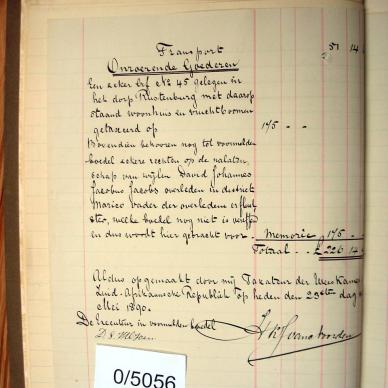 Transport 51 14
Onroerende Goederen
Een zeker Erf No 45 gelegen in
het dorp Rustenburg met daarop
staand woonhuis en vruchtboomen
getaxeerd op 175 - -
Bovendien behooren nog tot voormelden
boedel zekere rechten op de nalaten,
schap van wijlen David Johannes
Jacobus Jacobs overleden in district
Marico vader der overledene erflaat
ster, welke boedel nog niet is
en dus wordt hier gebracht voor - Memorie 175 - -
Totaal - - £ 226 14
Aldus opgemaakt door mij Taxateur der Weeskamer
Zuid-Afrikaansche Republiek op heden den 23ste dag
Mei 1890.
De Executeur in voormelden boedel
0/5056